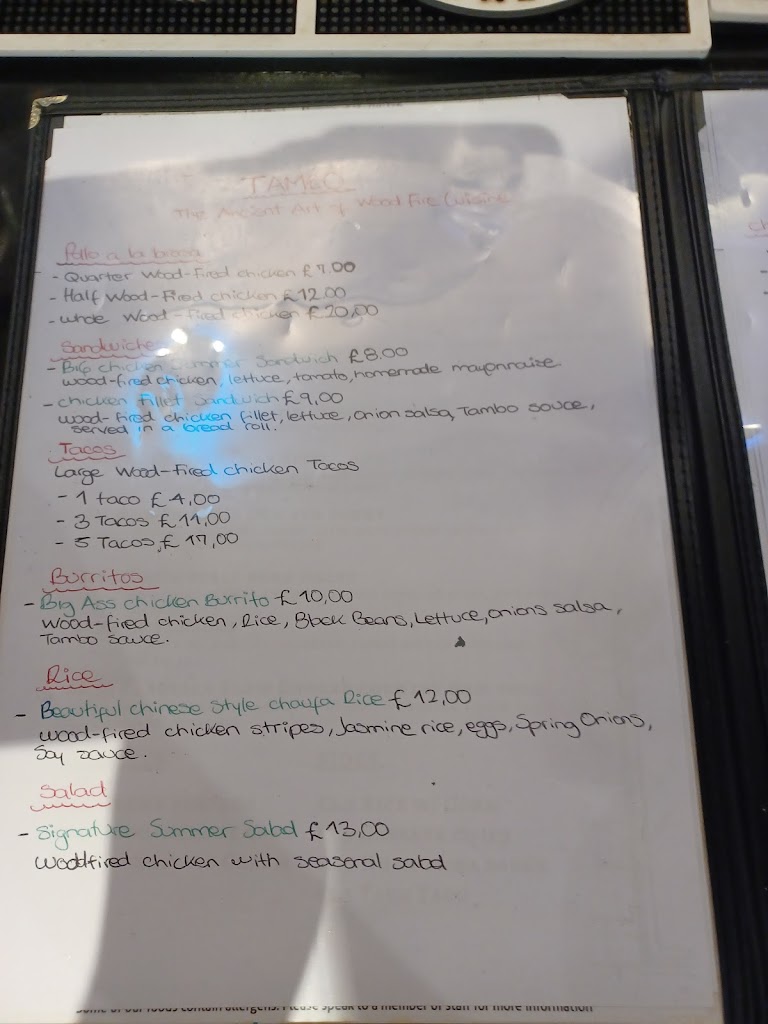 TAMBO
The Ancient Art of Wood Fire Cuisine
Pollo a la brasa
- Quarter Wood-Fired chicken £7.00
- Half Wood-Fired chicken £12.00
- whole Wood-Fired chicken £20,00
Sandwiches
- Big chicken Summer Sandwich £8.00
wood-fired chicken, lettuce, tomato, homemade mayonnaise
- chicken Fillet Sandwich £9,00
wood-fired chicken fillet, lettuce, onion salsa, Tambo souce,
served in a bread roll.
Tacos
Large Wood-Fired chicken Tacos
- 1 taco £4,00
- 3 Tacos £11,00
- 5 Tacos £17,00
Burritos
- Big Ass chicken Burrito £10,00
wood-fired chicken, Rice, Black Beans, Lettuce, onions salsa,
Tambo sauce.
Rice
- Beautiful chinese Style chaufa Rice £12,00
wood-fired chicken stripes, Jasmine rice, eggs, Spring Onions,
Soy sauce.
Salad
- Signature Summer Salad £13,00
Woodfired chicken with seasonal salad
Some of our foods contain allergens. Please speak to a member of staff for more information